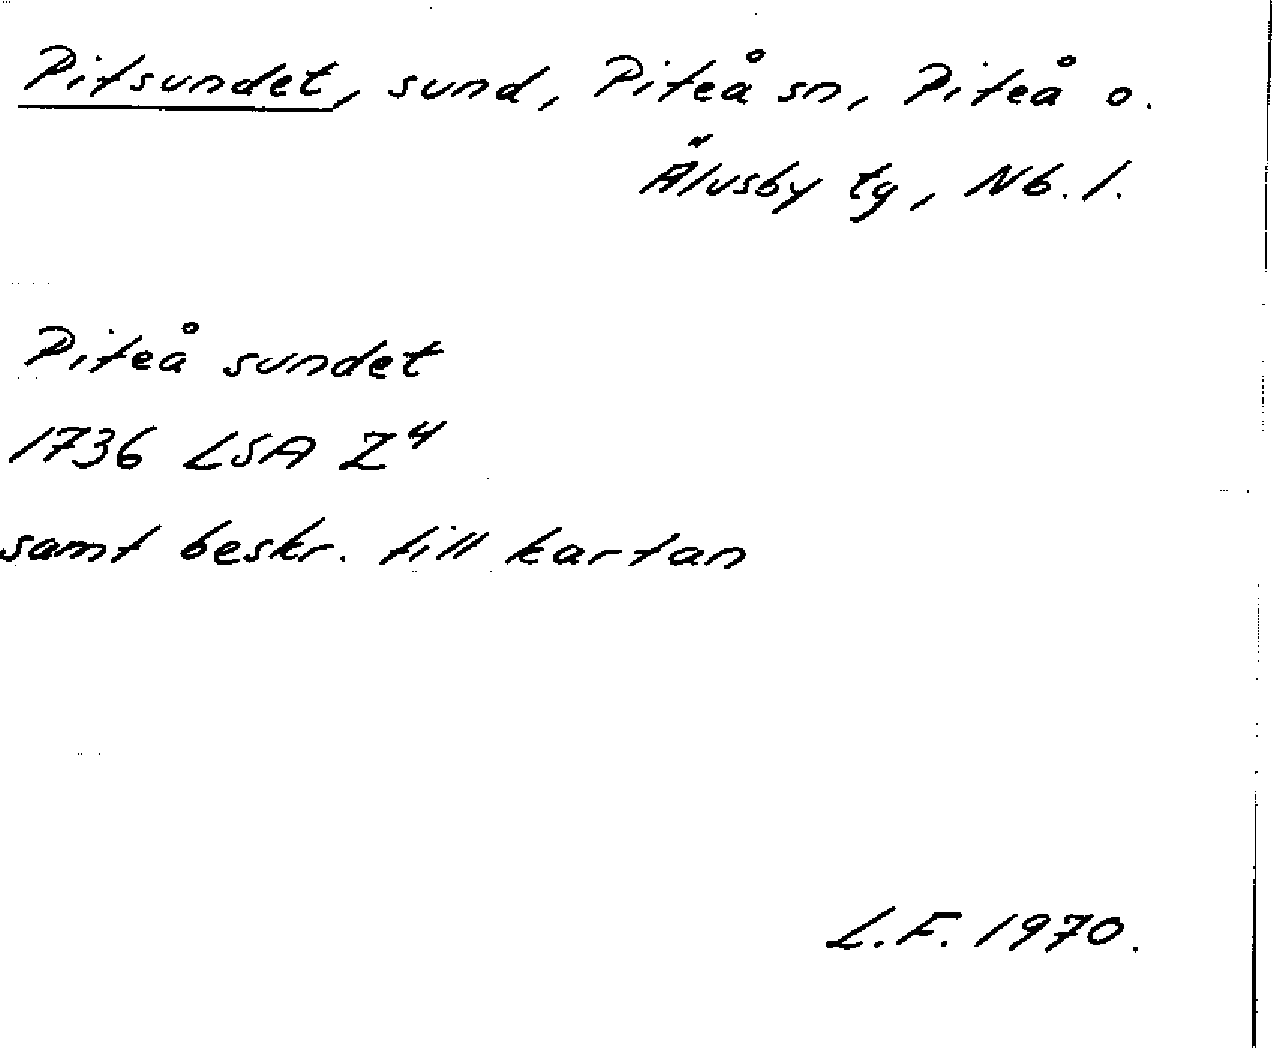 Pitsundet, sund, Piteå sn, Piteå o.
Älvsby tg, Nb. l.
Piteå sundet
1736 LSA Z⁴
samt beskr. till kartan
L.F. 1970.